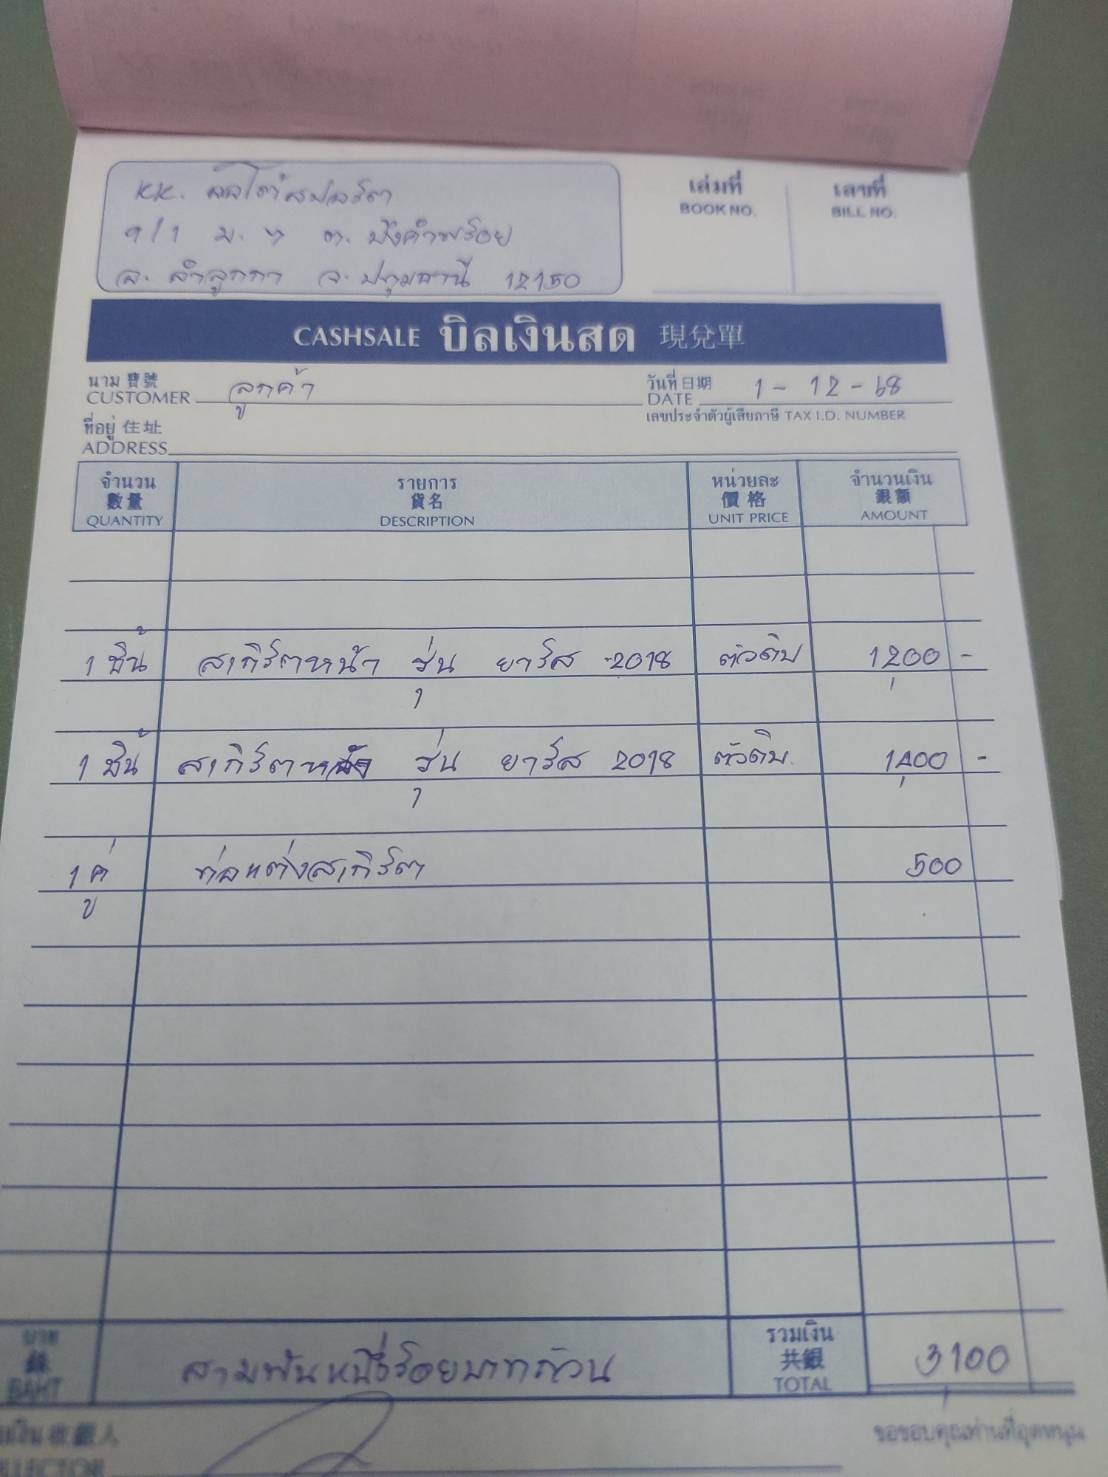 KK. ออโต้สปอร์ต
9/1 ม. 7 ต. บึงคำพร้อย
อ. ลำลูกกา จ. ปทุมธานี 12150
เล่มที่ เลขที่
BOOK NO. BILL NO.
CASHSALE บิลเงินสด 現兌單
นาม 寶號
CUSTOMER ลูกค้า
วันที่ 日期
DATE 1-12-68
เลขประจำตัวผู้เสียภาษี TAX I.D. NUMBER
ที่อยู่ 住址
ADDRESS
จำนวน รายการ หน่วยละ จำนวนเงิน
數量 貨名 價格 銀額
QUANTITY DESCRIPTION UNIT PRICE AMOUNT
1 ชิ้น สเกิร์ตหน้า รุ่น ยาริส 2018 ตัวดิบ 1,200 -
1 ชิ้น สเกิร์ตหลัง รุ่น ยาริส 2018 ตัวดิบ 1,400 -
1 คู่ ท่อแต่งสเกิร์ต 500
บาท
銖
BAHT
สามพันหนึ่งร้อยบาทถ้วน
รวมเงิน
共銀
TOTAL
3,100
ขอขอบคุณท่านที่อุดหนุน